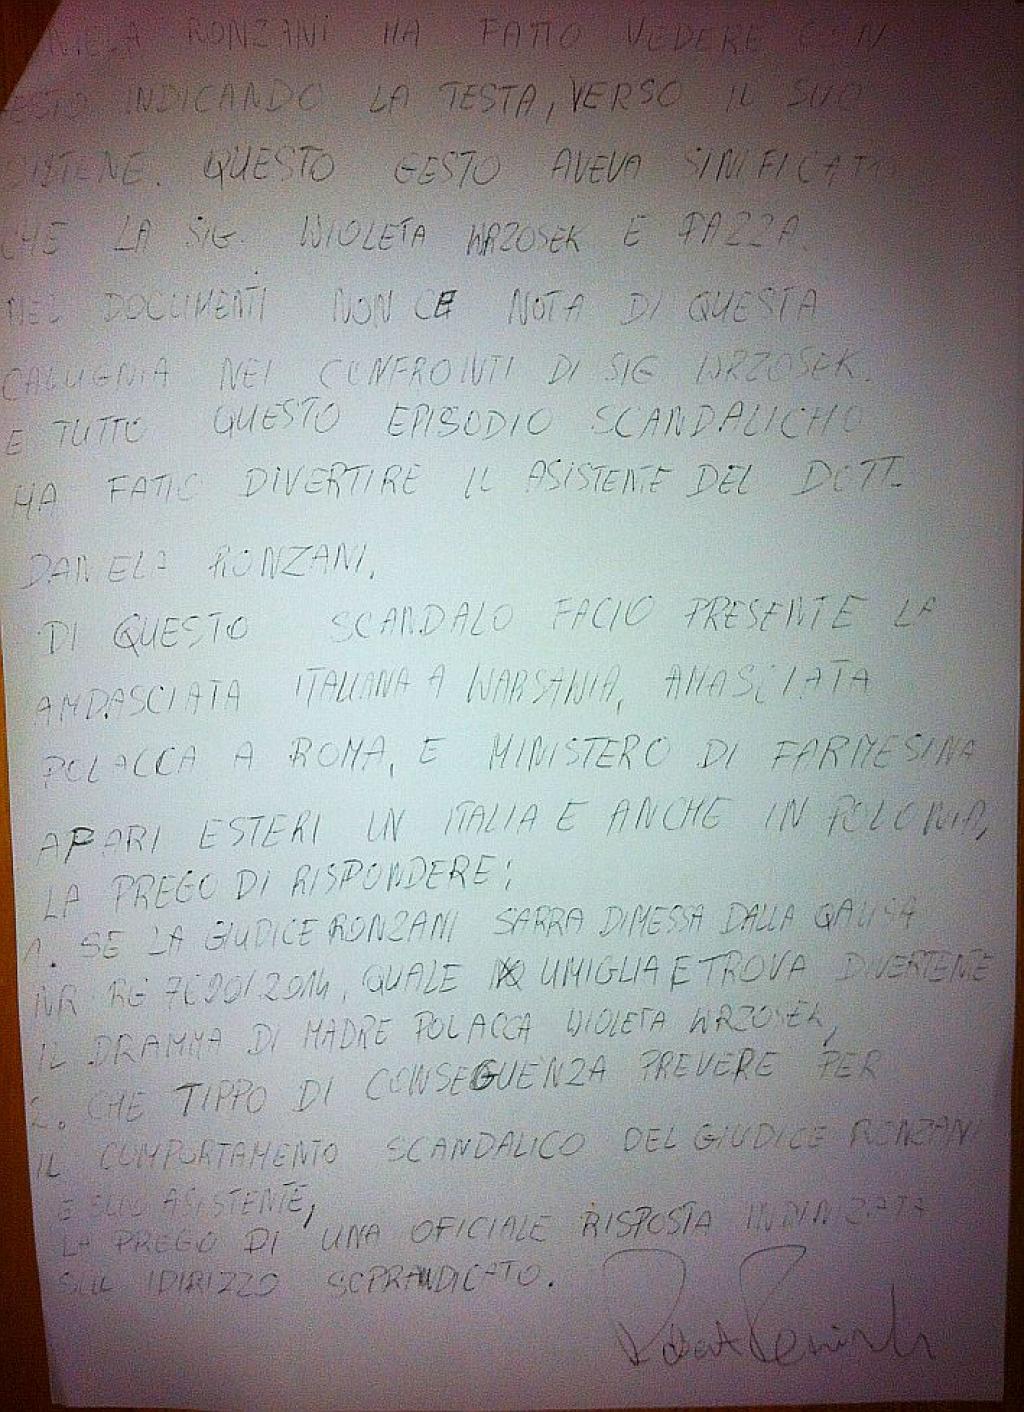 RONZANI HA FATTO VEDERE CON
INDICANDO LA TESTA, VERSO IL SUO
QUESTO GESTO AVEVA SINIFICATO
CHE LA SIG. WIOLETA WRZOSEK E PAZZA.
NEL DOCUMENTI NON CE NOTA DI QUESTA
CALUGNIA NEI CONFRONTI DI SIG WRZOSEK.
E TUTTO QUESTO EPISODIO SCANDALICHO
HA FATTO DIVERTIRE IL ASISTENTE DEL DOTT.
DANIELA RONZANI.
DI QUESTO SCANDALO FACIO PRESENTE LA
AMDASCIATA ITALIANA A WARSAWIA, AMASCIATA
POLACCA A ROMA, E MINISTERO DI FARNESINA
APARI ESTERI IN ITALIA E ANCHE IN POLONIA,
LA PREGO DI RISPONDERE;
1. SE LA GIUDICE RONZANI SARRA DIMESSA DALLA QAUSA
NR RG 7090/2014, QUALE UMIGLIA E TROVA DIVERTENTE
IL DRAMMA DI MADRE POLACCA WIOLETA WRZOSEK,
2. CHE TIPPO DI CONSEGUENZA PREVERE PER
IL COMPORTAMENTO SCANDALICO DEL GIUDICE RONZANI
E SUO ASISTENTE,
LA PREGO DI UNA OFICIALE RISPOSTA
SUL IDIRIZZO SOPRANDICATO.